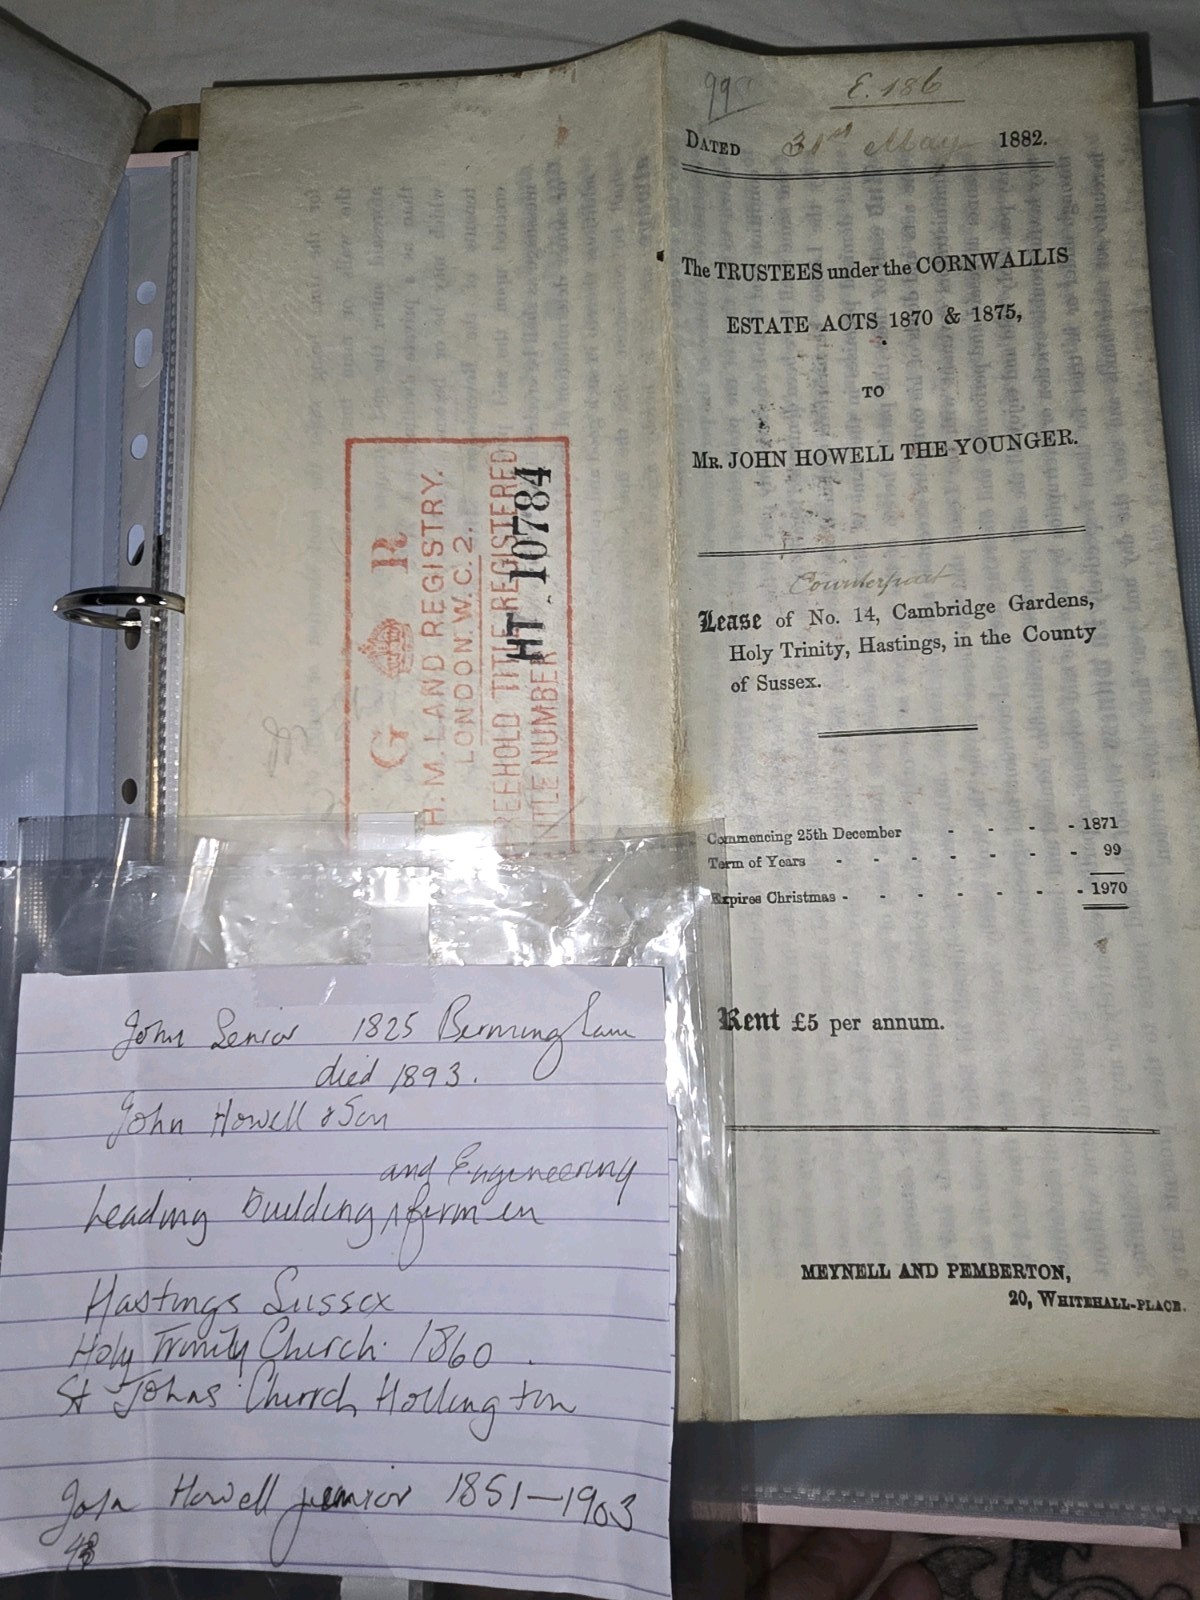 99
E. 186
DATED 31st May 1882.
The TRUSTEES under the CORNWALLIS
ESTATE ACTS 1870 & 1875,
TO
MR. JOHN HOWELL THE YOUNGER.
Counterpart
Lease of No. 14, Cambridge Gardens,
Holy Trinity, Hastings, in the County
of Sussex.
Commencing 25th December - - - - 1871
Term of Years - - - - - - - 99
Expires Christmas - - - - - - - 1970
Rent £5 per annum.
MEYNELL AND PEMBERTON,
20, WHITEHALL-PLACE.
G R
H. M. LAND REGISTRY.
LONDON. W.C. 2.
FREEHOLD TITLE REGISTERED
TITLE NUMBER
HT 10784
John Senior 1825 Bermingham
died 1893.
John Howell & Son
and Engineering
Leading building firm in
Hastings Sussex
Holy Trinity Church. 1860.
St Johns Church Hollington
John Howell junior 1851-1903